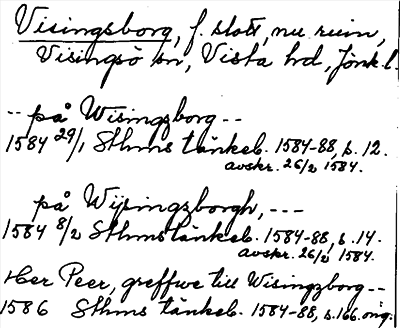 Visingsborg, f. slott, nu ruin,
Visingsö sn, Vista hd, Jönk. l.
-- på Wisingzborg --
1584 29/1 Sthms tänkeb. 1584-88, s. 12.
avskr. 26/2 1584.
på Wijsingzborgh, ---
1584 8/2 Sthms tänkeb. 1584-88, s. 14.
avskr. 26/2 1584.
Her Peer, greffwe till Wisingzborg --
1586 Sthms tänkeb. 1584-88, s. 166. orig.